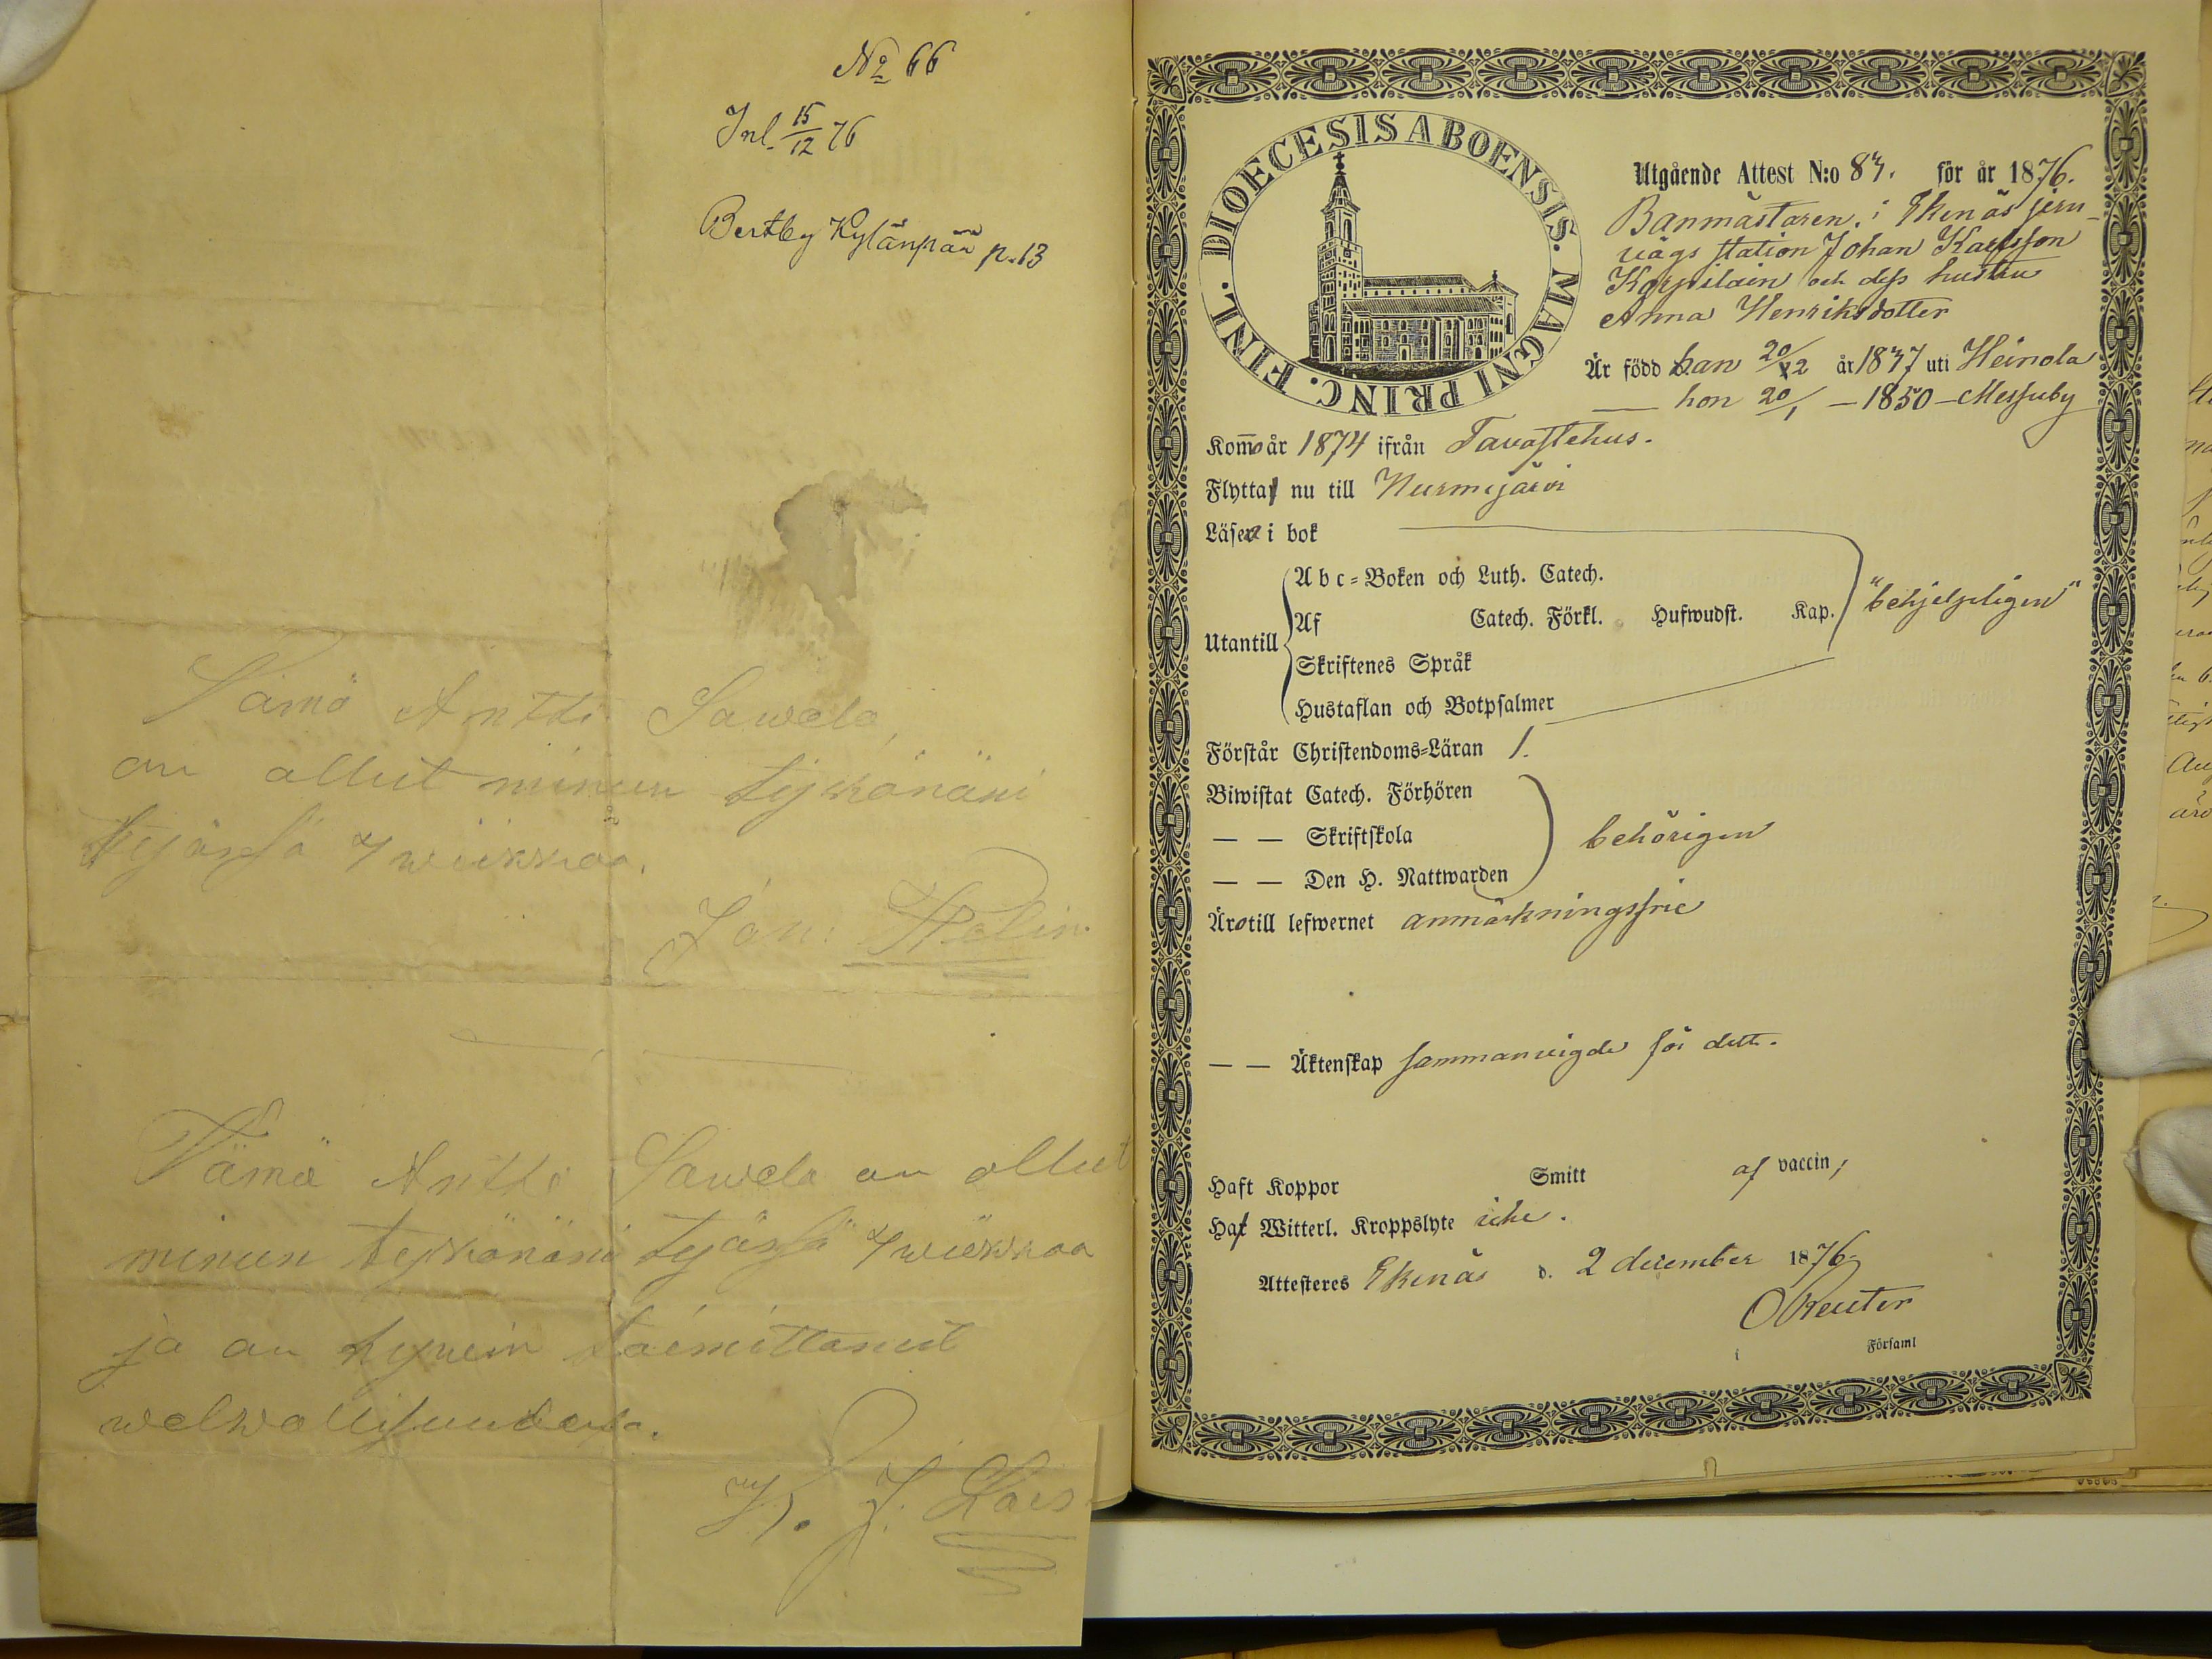 No 66
Inl. 15/12 76
Bertby Kylänpää p. 13
Tämä Antti Sawela
on ollut minun tykönäni
työssä 7 wiikkoa.
Joh: Helin
Tämä Antti Sawela on ollut
minun tykönäni työssä 7 wiikkoa
ja on hywin toimittanut
welwollisuudensa.
K. J. Lars
DIOECESIS ABOENSIS. MAGNI PRINC. FINL.
Utgående Attest N:o 83. för år 1876.
Banmästaren i Ekenäs jern-
vägs station Johan Karlsson
Karpilain och dess hustru
Anna Henriksdotter
Är född han 20/12 år 1837 uti Heinola
— hon 20/1 — 1850 — Messuby
Kommo år 1874 ifrån Tavastehus.
Flytta nu till Nurmijärvi
Läsa i bok
Abc=Boken och Luth. Catech.
Utantill Af Catech. Förkl. Hufwudst. Kap. "behjelpligen"
Skriftenes Språk
Hustaflan och Botpsalmer
Förstår Christendoms=Läran 1.
Biwistat Catech. Förhören
— — Skriftskola behörigen
— — Den H. Nattwarden
Äro till lefwernet anmärkningsfrie
— — Äktenskap sammanvigde för dett.
Haft Koppor Smitt af vaccin;
Haf Witterl. Kroppslyte icke.
Attesteres Ekenäs d. 2 december 1876
O Reuter
i Församl